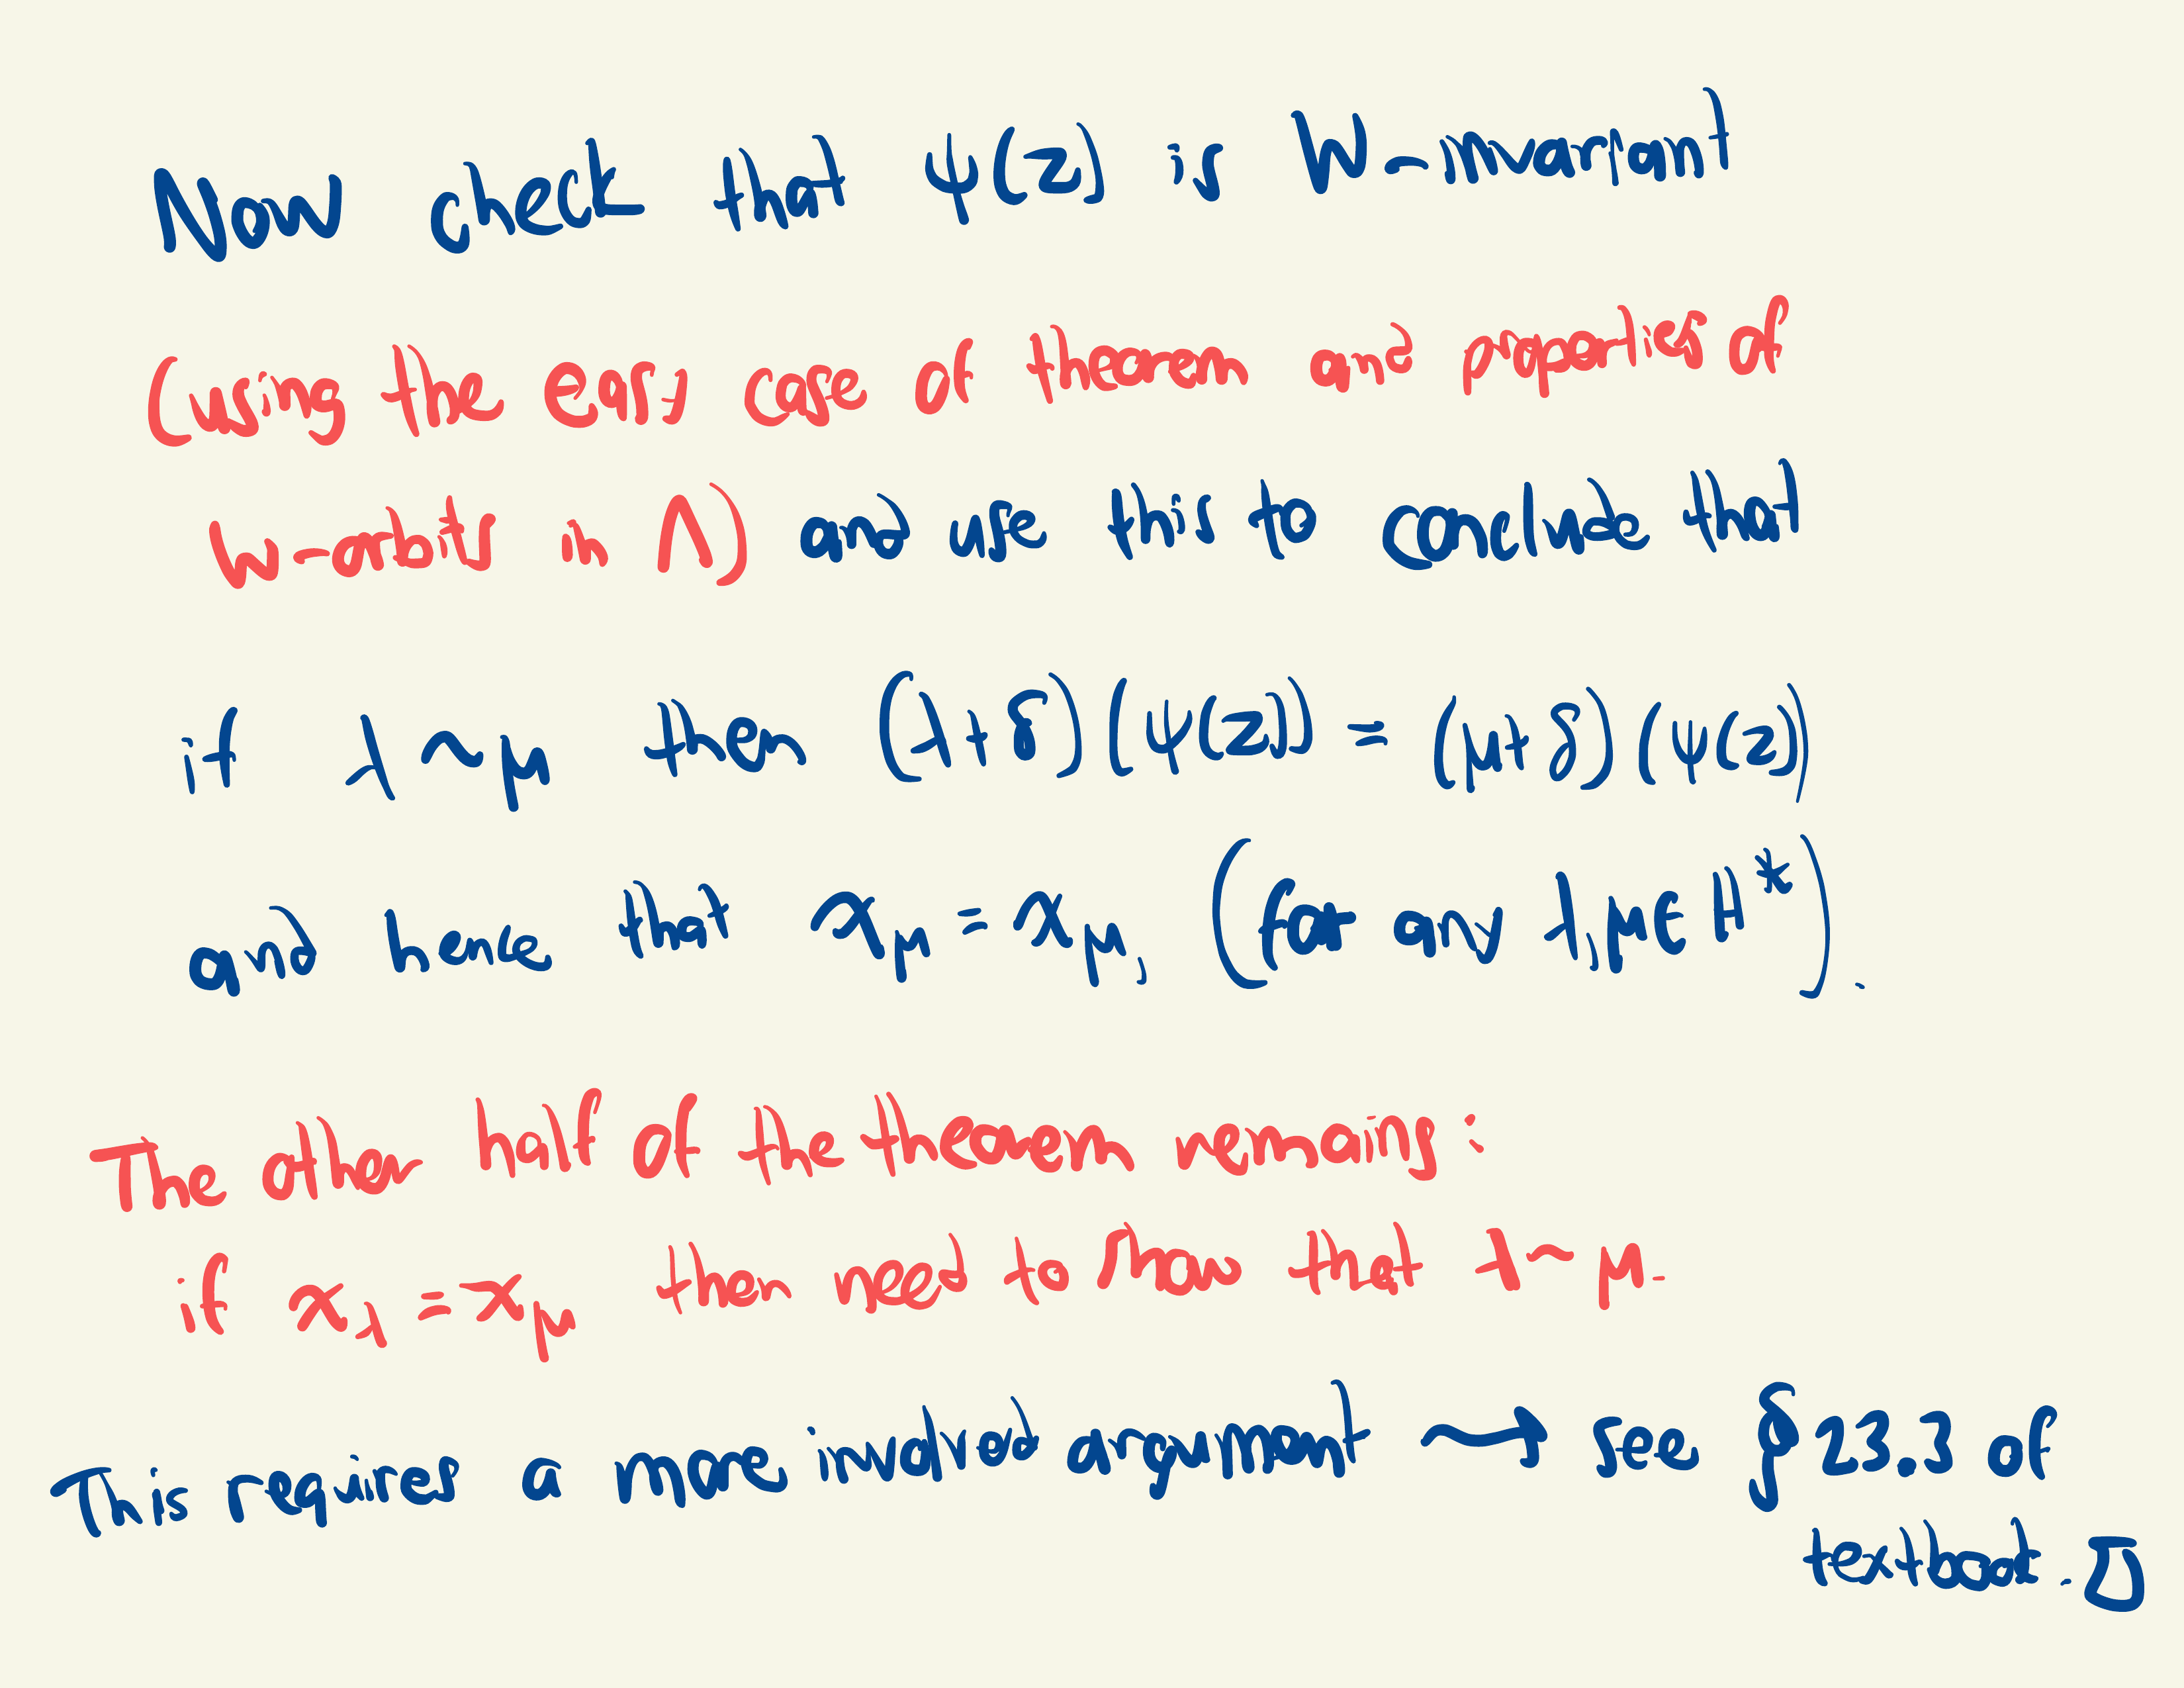 Now check that ψ(z) is W-invariant
(using the easy case of theorem and properties of
W-orbits in Λ) and use this to conclude that
if λ ~ μ then (λ+δ)(ψ(z)) = (μ+δ)(ψ(z))
and hence that χ_μ = χ_μ, (for any λ, μ ∈ H*).
The other half of the theorem remains:
if χ_λ = χ_μ then need to show that λ ~ μ.
This requires a more involved argument ⟶ see § 23.3 of
textbook. □